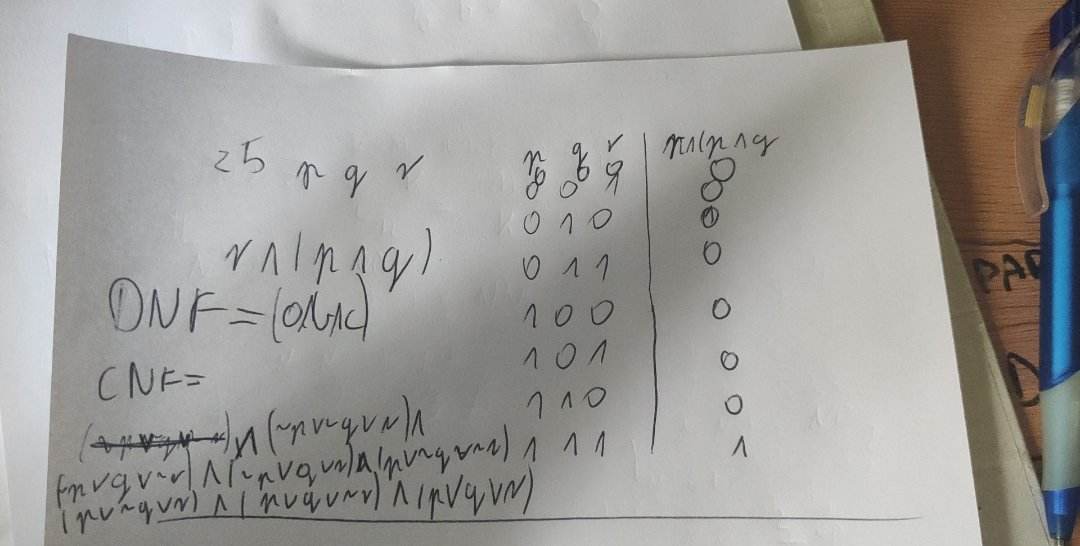 25 p q r
r ∧ (p ∧ q)
DNF =
CNF =
∧ (~p ∨ ~q ∨ r) ∧
(~p ∨ q ∨ ~r) ∧ (~p ∨ q ∨ r) ∧ (p ∨ ~q ∨ ~r)
(p ∨ ~q ∨ r) ∧ (p ∨ q ∨ ~r) ∧ (p ∨ q ∨ r)
p q r r∧(p∧q
0 0 0 0
0 0 1 0
0 1 0 0
0 1 1 0
1 0 0 0
1 0 1 0
1 1 0 0
1 1 1 1